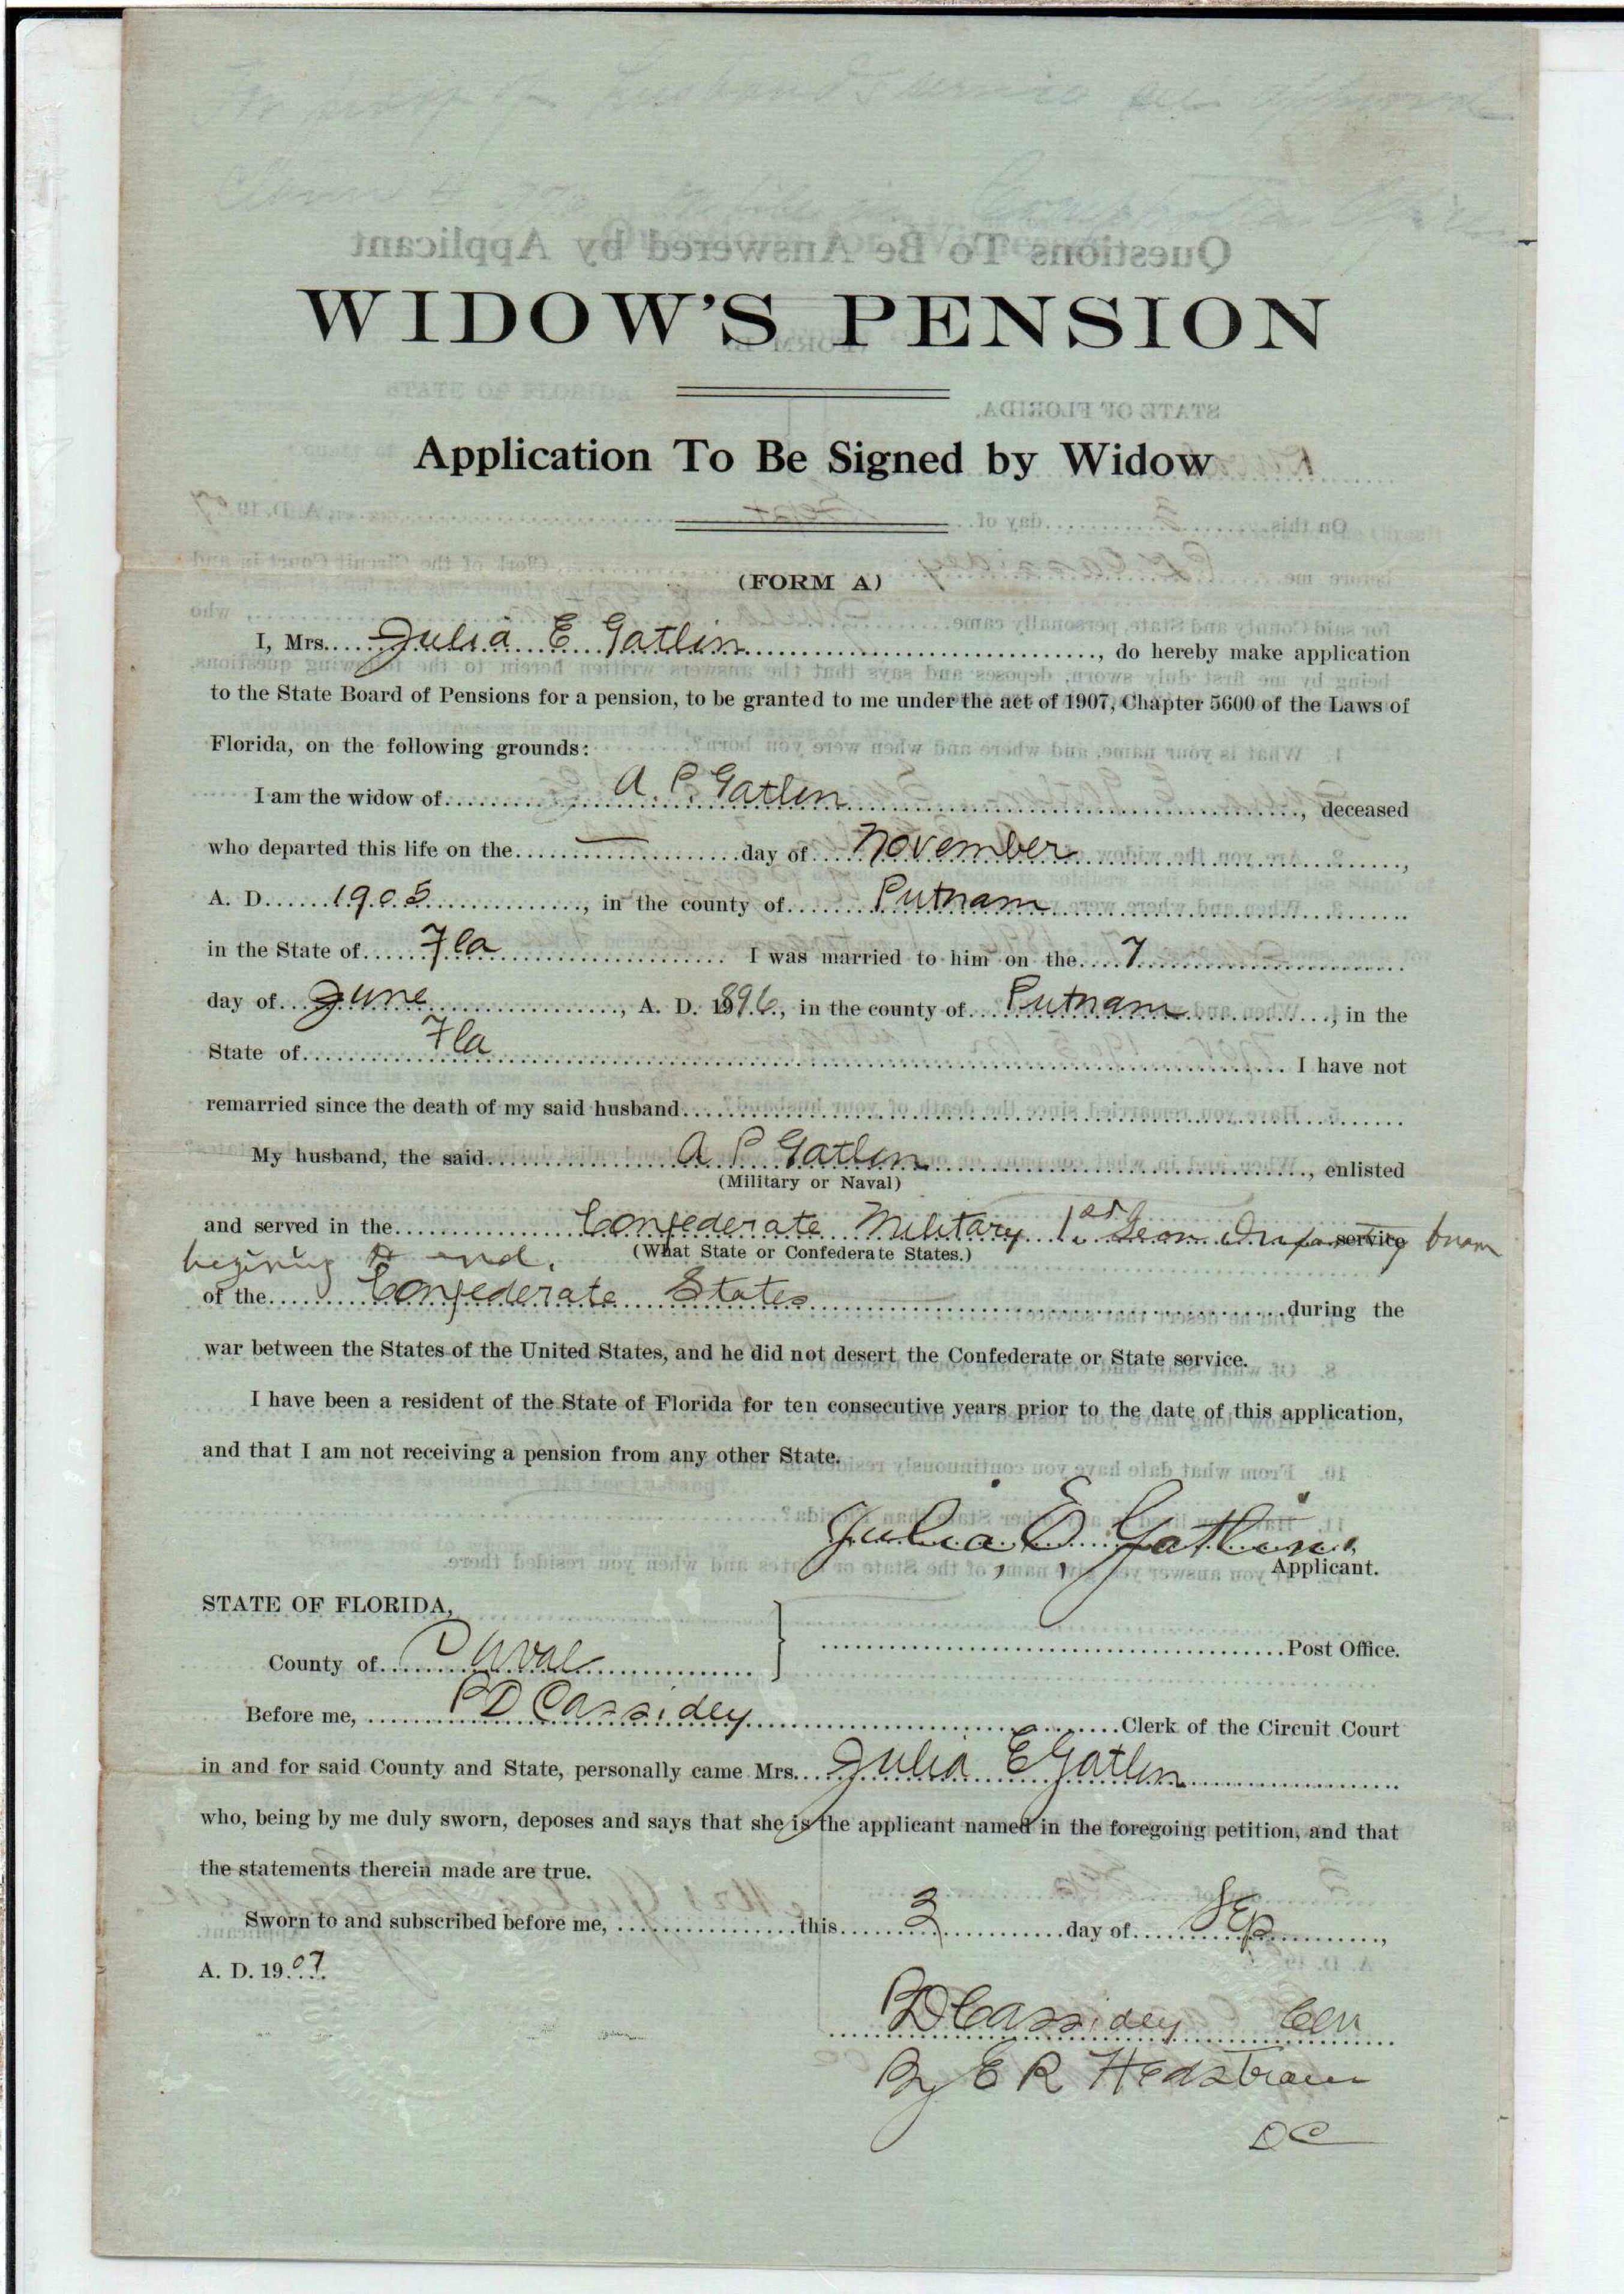 WIDOW'S PENSION
Application To Be Signed by Widow
(FORM A)
I, Mrs. Julia E Gatlin, do hereby make application
to the State Board of Pensions for a pension, to be granted to me under the act of 1907, Chapter 5600 of the Laws of
Florida, on the following grounds:
I am the widow of A. P. Gatlin, deceased
who departed this life on the — day of November,
A. D. 1905, in the county of Putnam
in the State of Fla I was married to him on the 7
day of June, A. D. 1896, in the county of Putnam, in the
State of Fla I have not
remarried since the death of my said husband
My husband, the said A P Gatlin, enlisted
(Military or Naval)
and served in the Confederate Military 1st service from
(What State or Confederate States.)
begining to end.
of the Confederate States during the
war between the States of the United States, and he did not desert the Confederate or State service.
I have been a resident of the State of Florida for ten consecutive years prior to the date of this application,
and that I am not receiving a pension from any other State.
Julia, E, Gatlin.
Applicant.
STATE OF FLORIDA,
Post Office.
County of Duval
Before me, P D Cassidey Clerk of the Circuit Court
in and for said County and State, personally came Mrs. Julia E Gatlin
who, being by me duly sworn, deposes and says that she is the applicant named in the foregoing petition, and that
the statements therein made are true.
Sworn to and subscribed before me, this 3 day of Sep,
A. D. 1907.
P D Cassidey
By E R Hedstrom
DC